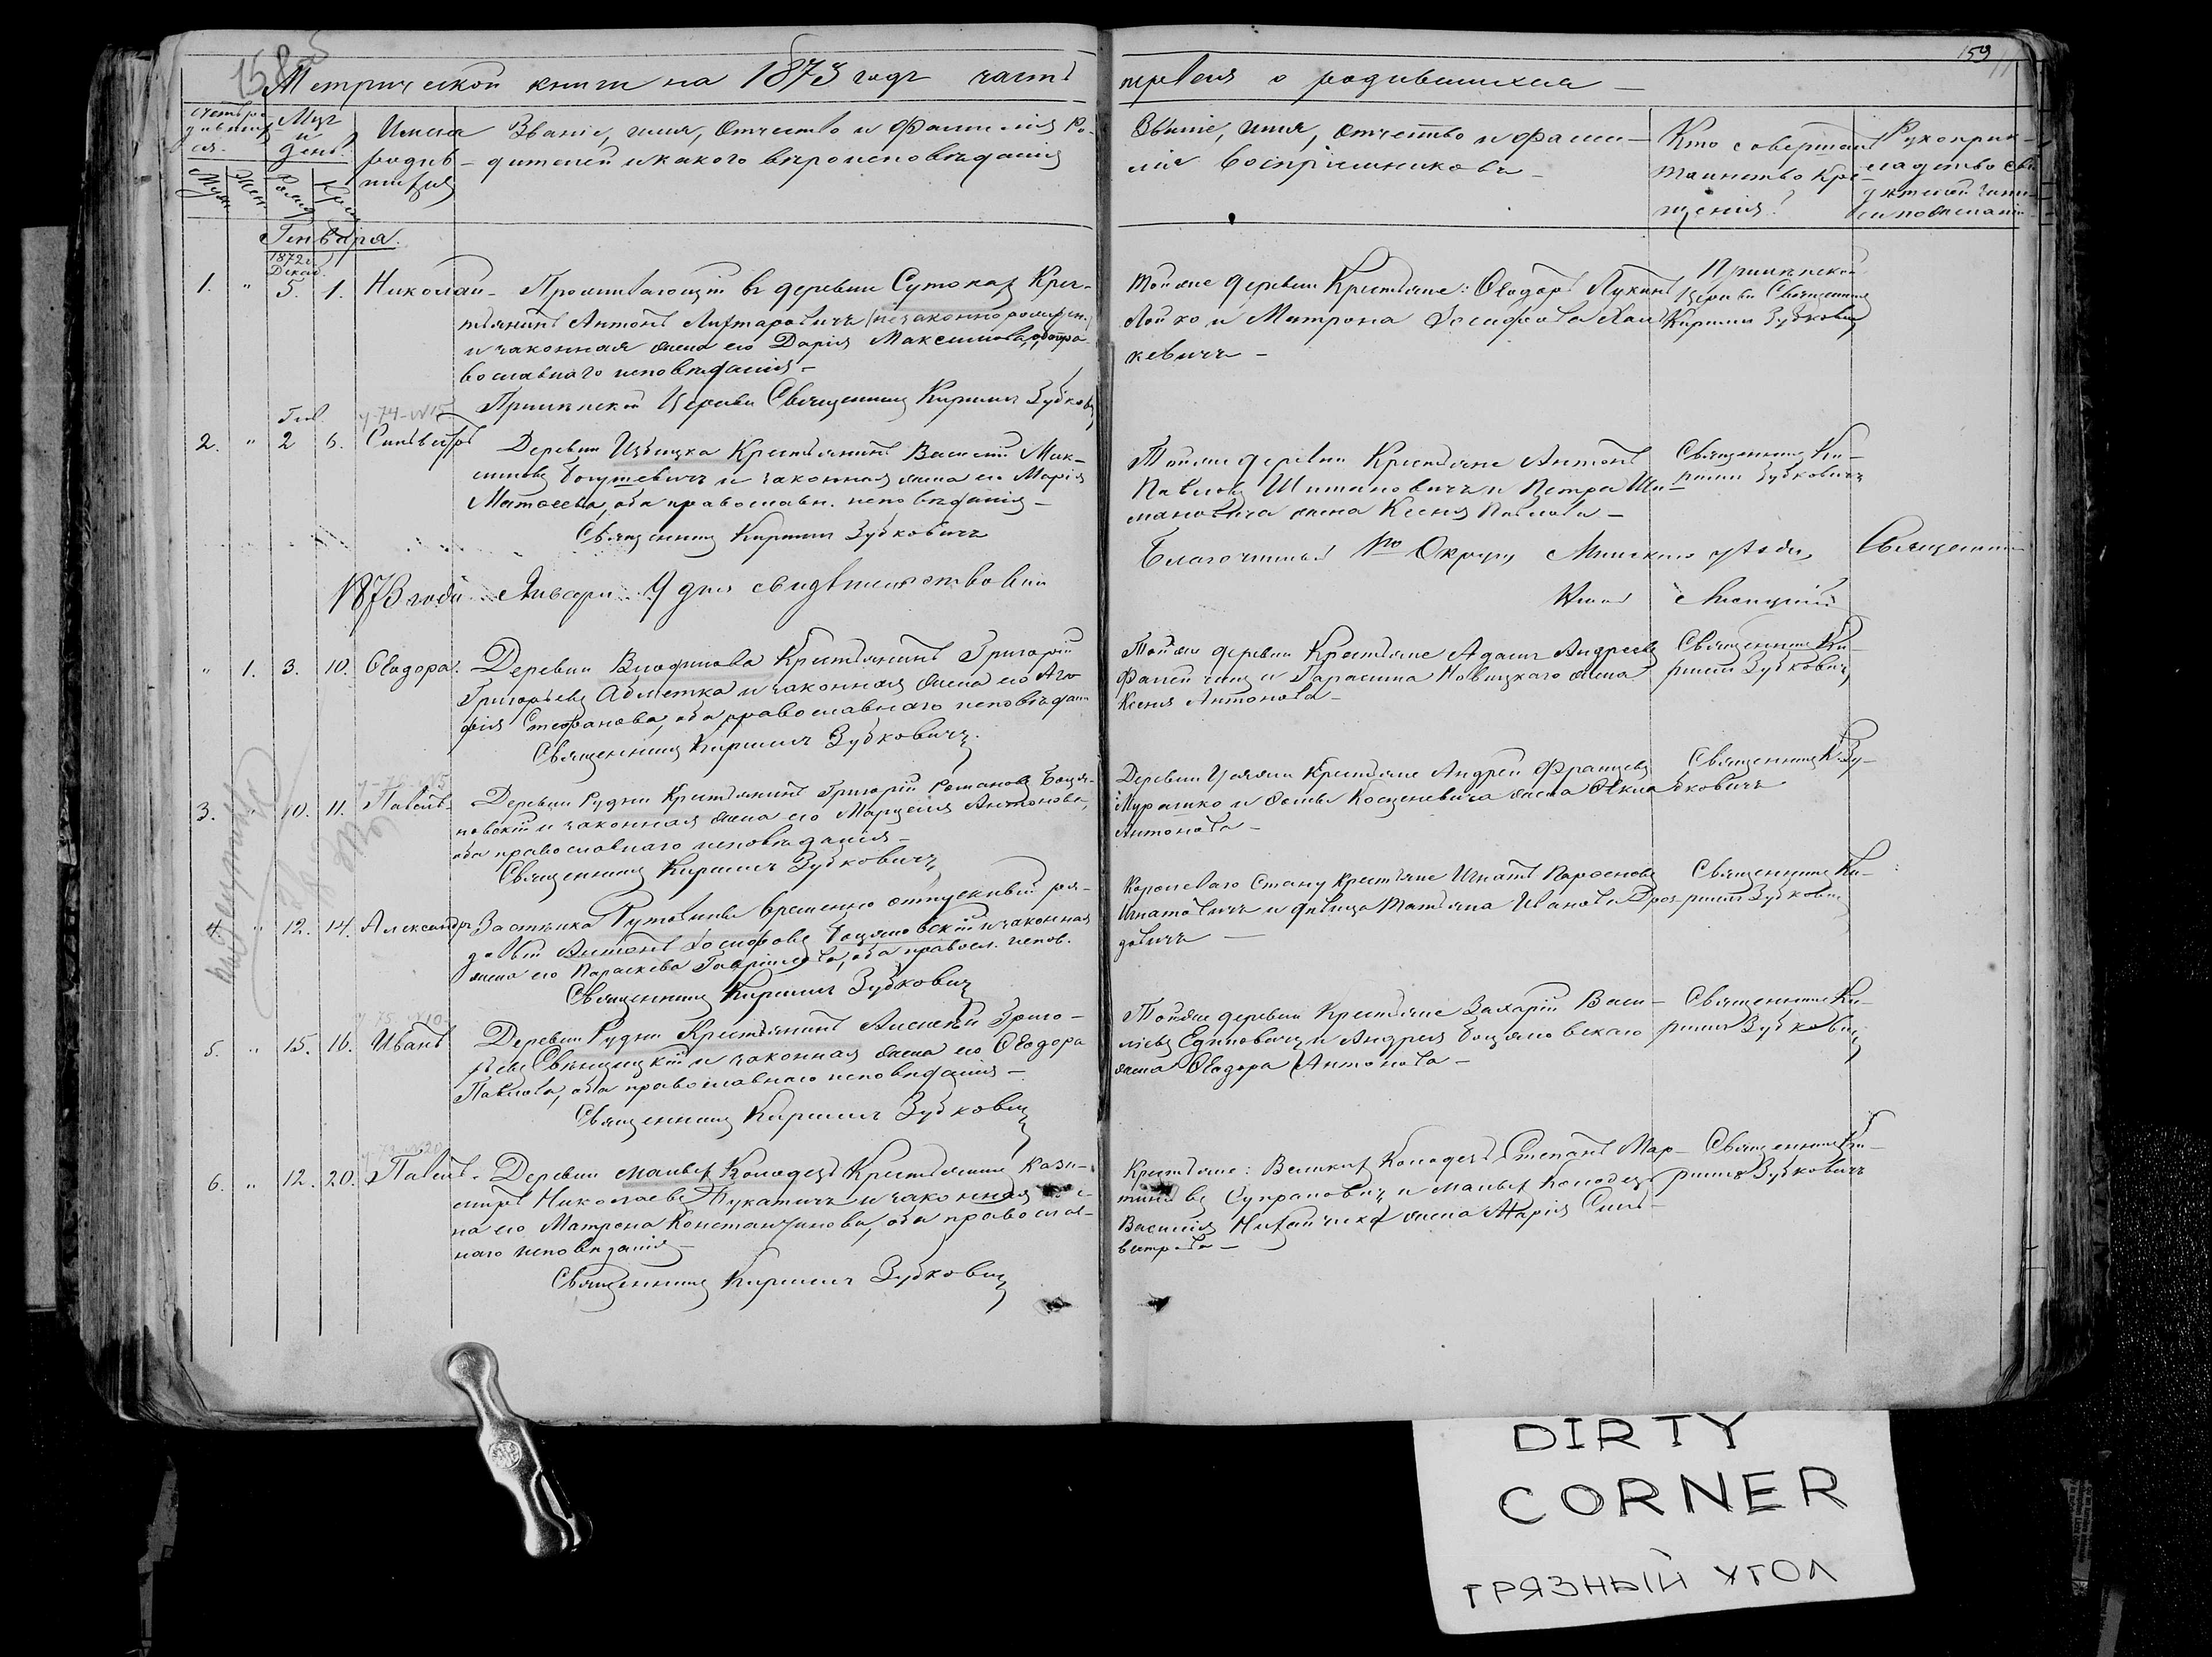 158об
159
Метрической книги на 1873 годъ часть первая о родившихся
Счетъ родившихся.
Муж.
Жен.
Мѣс. и день.
Рожд.
Крещ.
Имена родившихся
Званіе, имя, отчество и фамилія Родителей и какого вѣроисповѣданія
Званіе, имя, отчество и фамилія воспріемниковъ
Кто совершалъ таинство крещенія?
Рукоприкладство свидѣтелей записи по желанію
Генваря.
1872 г. Декаб.
1. " 5. 1. Николай
Проживающій въ деревни Сутокахъ Крес-
тьянинъ Антонъ (незаконнорожден.)
и законная жена его Дарія Максимова, оба пра-
вославнаго исповѣданія
Церкви Священникъ Кириллъ Зубковичъ
Тойже деревни Крестьяне: Ѳеодоръ Лукинъ
Лойко и Матрона Іосифова Хац-
кевичъ
Церкви Священникъ
Кириллъ Зубковичъ
Генв.
у-74-№15
2. " 2 6. Сильвестръ
Деревни Избицка Крестьянинъ Василій Мак-
симовъ Богушевичъ и законная жена его Марія
Матѳеева, оба православн. исповѣданія
Священникъ Кириллъ Зубковичъ
Тойже деревни Крестьяне Антонъ
Павловъ Шимановичъ и Петра Ши-
мановича жена Ксенія Павлова
Священникъ Ки-
риллъ Зубковичъ
1873 года Января 9 дня свидѣтельствовалъ
Благочинный Округу Минскаго уѣзда, Священникъ
" 1. 3. 10. Ѳеодора.
Деревни Крестьянинъ Григорій
Григорьевъ Абметка и законная жена его Ага-
фія Стефанова, оба православнаго исповѣданія
Священникъ Кириллъ Зубковичъ.
Тойже деревни Крестьяне Адамъ Андреевъ
и Гарасима Новицкаго жена
Ксенія Антонова
Священникъ Ки-
риллъ Зубковичъ
3. " 10. 11. Павелъ
Деревни Рудни Крестьянинъ Григорій Романовъ Боця-
новскій и законная жена его Марцелія Антонова,
оба православнаго исповѣданія
Священникъ Кириллъ Зубковичъ
Деревни Крестьяне Андрей Францевъ
Мурашко и Косценевича жена Ѳекла
Антонова
Священникъ К. Зу-
бковичъ
4. " 12. 14. Александръ
Застѣнка временно отпускный ря-
довый Антонъ Іосифовъ Боцяновскій и законная
жена его Параскева Гавріилова, оба правосл. испов.
Священникъ Кириллъ Зубковичъ
Королеваго Стану Крестьяне Игнатъ Парѳеновъ
Игнатовичъ и дѣвица Татьяна Иванова Дроз-
довичъ
Священникъ Ки-
риллъ Зубковичъ
у 75 №10
5. " 15. 16. Иванъ
Деревни Рудни Крестьянинъ Алексѣй Григо-
рьевъ и законная жена его Ѳеодора
Павлова, оба православнаго исповѣданія
Священникъ Кириллъ Зубковичъ
Тойже деревни Крестьяне Захарій Васи-
ліевъ и Андрея Боцяновскаго
жена Ѳеодора Антонова
Священникъ Ки-
риллъ Зубковичъ
6. " 12. 20. Павелъ
Деревни малыхъ Колодезь Крестьянинъ Кази-
миръ Николаевъ и законная же-
на его Матрона Константинова, оба православ-
наго исповѣданія
Священникъ Кириллъ Зубковичъ
Крестьяне: Великихъ Колодезь Степанъ Мар-
тиновъ Супрановичъ и малыхъ Колодезь
Василія жена Марія Силь-
вестрова
Священникъ Ки-
риллъ Зубковичъ
DIRTY
CORNER
ГРЯЗНЫЙ УГОЛ